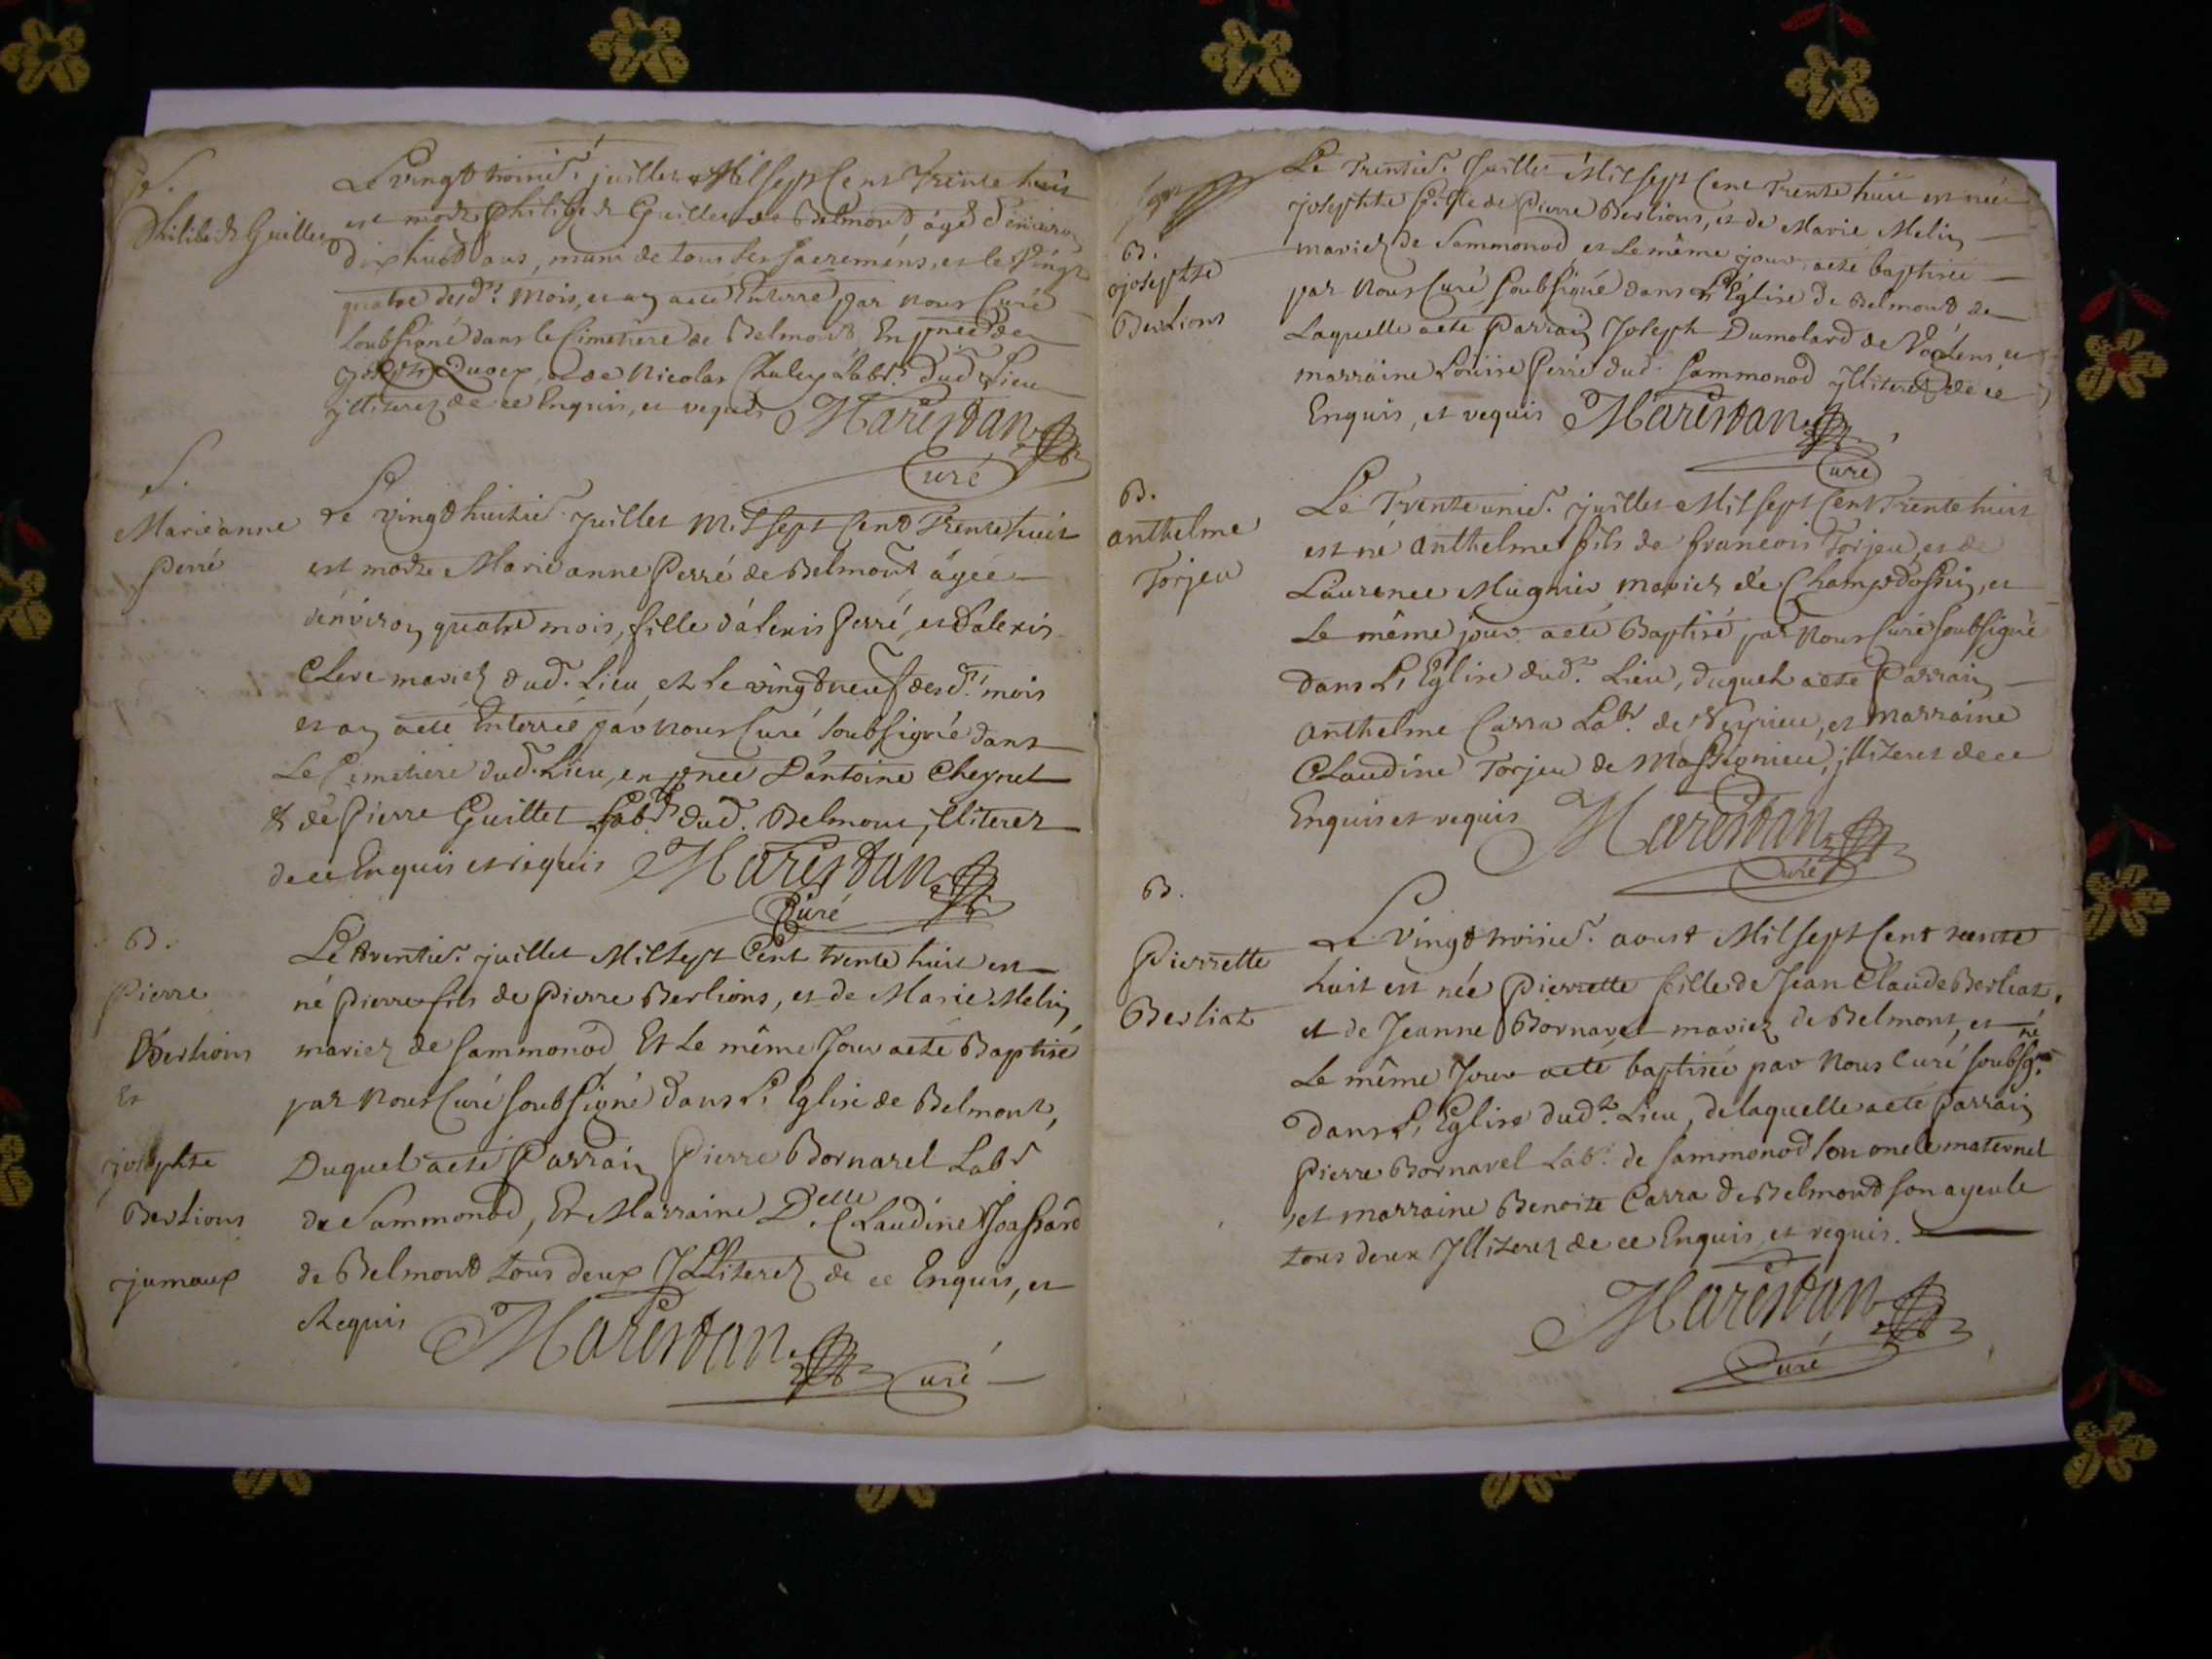 S.
Philibert Guillet
Le vingt troisie. juillet Mil sept Cent Trente huit
est mort Philibert Guillet de Belmont âgé d'environ
dix huit ans, muni de tous les sacremens, et le vingt
quatre desdt. mois, et an a été Enterré par nous Curé
soubsigné dans le Cimetiere de Belmont, En pnce de
joseph et de Nicolas Chaley Labrs. dud Lieu
jlliterez de ce Enquis, et requis Marestan
Curé
S.
Marieanne
Perré
Le vingt huitie. juillet Mil sept Cent Trente huit
est morte Marie anne Perré de Belmont âgée
d'environ quatre mois, fille d'alexis Perré, et d'alexis
Clere mariez dud. Lieu, et le vingt neuf desdt. mois
et an a été Enterrée par nous Curé soubsigné dans
Le Cimetiere dud. Lieu, en pnce D'antoine Cheynel
& de Pierre Guillet Labrs dud. Belmont, jlliterez
de ce Enquis et requis Marestan
Curé
B.
Pierre
Berlions
Et
josephte
Berlions
jumaux
Le trentie. juillet Mil sept Cent trente huit est
né Pierre fils de Pierre Berlions, et de Marie Melin
mariez de Sammonod Et Le même Jour a été Baptisé
par nous Curé soubsigné dans L'Eglise de Belmont,
Duquel a été Parrain Pierre Bornarel Labr
de Sammonod, Et Marraine Delle. Claudine Joassard
de Belmont tous deux Jlliterez de ce Enquis, et
Requis Marestan Curé
B.
josephte
Berlions
Le Trentie. Juillet Mil sept Cent Trente huit est née
josephte fille de Pierre Berlions, et de Marie Melin
mariez de Sammonod, et Le même jour a été baptisée
par nous Curé soubsigné dans L'Eglise de Belmont de
Laquelle a été Parrain Joseph Dumolard de et
marraine Louise Perré dud. Sammonod jlliterez de ce
Enquis, et requis Marestan
Curé
B.
anthelme
Torjeu
Le Trente unie. juillet Mil sept Cent Trente huit
est né anthelme fils de francois Torjeu, et de
Laurence Mugnier mariez de Champdossin, et
Le même jour a été Baptisé par nous Curé soubsigné
Dans L'Eglise dud. Lieu, duquel a été Parrain
anthelme Carra Labr. de Veyrieu, et marraine
Claudine Torjeu de Massignieu, jlliterez de ce
Enquis et requis Marestan
Curé
B.
Pierrette
Berliat
Le Vingt troisie. aoust Mil sept Cent trente
huit est née Pierrette fille de Jean Claude Berliat,
et de Jeanne Bornarel mariez de Belmont, et
Le même Jour a été baptisée par Nous Curé soubsigné
dans L'Eglise dudt. Lieu, delaquelle a été Parrain
Pierre Bornarel Labr. de Sammonod son oncle maternel
et marraine Benoite Carra de Belmont son ayeule
tous deux Jlliterez de ce Enquis et requis.
Marestan
Curé